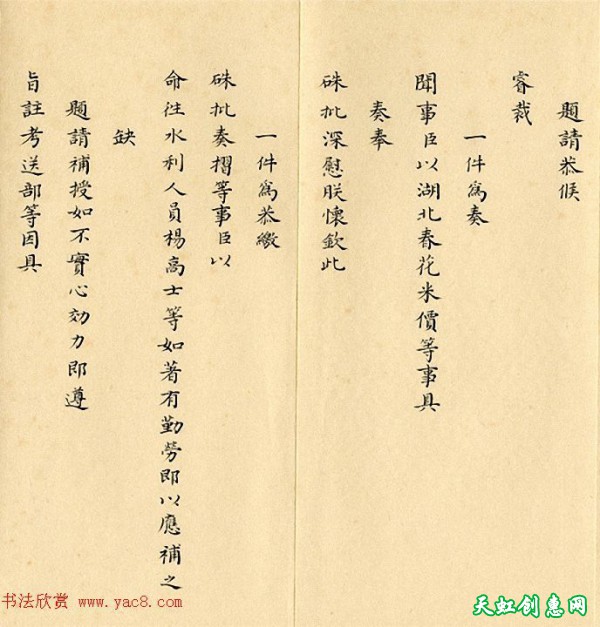 題請恭候
睿裁
一件為奏
聞事臣以湖北春花米價等事具
奏奉
硃批深慰朕懷欽此
一件為恭繳
硃批奏摺等事臣以
命往水利人員楊高士等如著有勤勞即以應補之
缺
題請補授如不實心効力即遵
旨註考送部等因具
书法欣赏 www.yac8.com
天虹创惠网